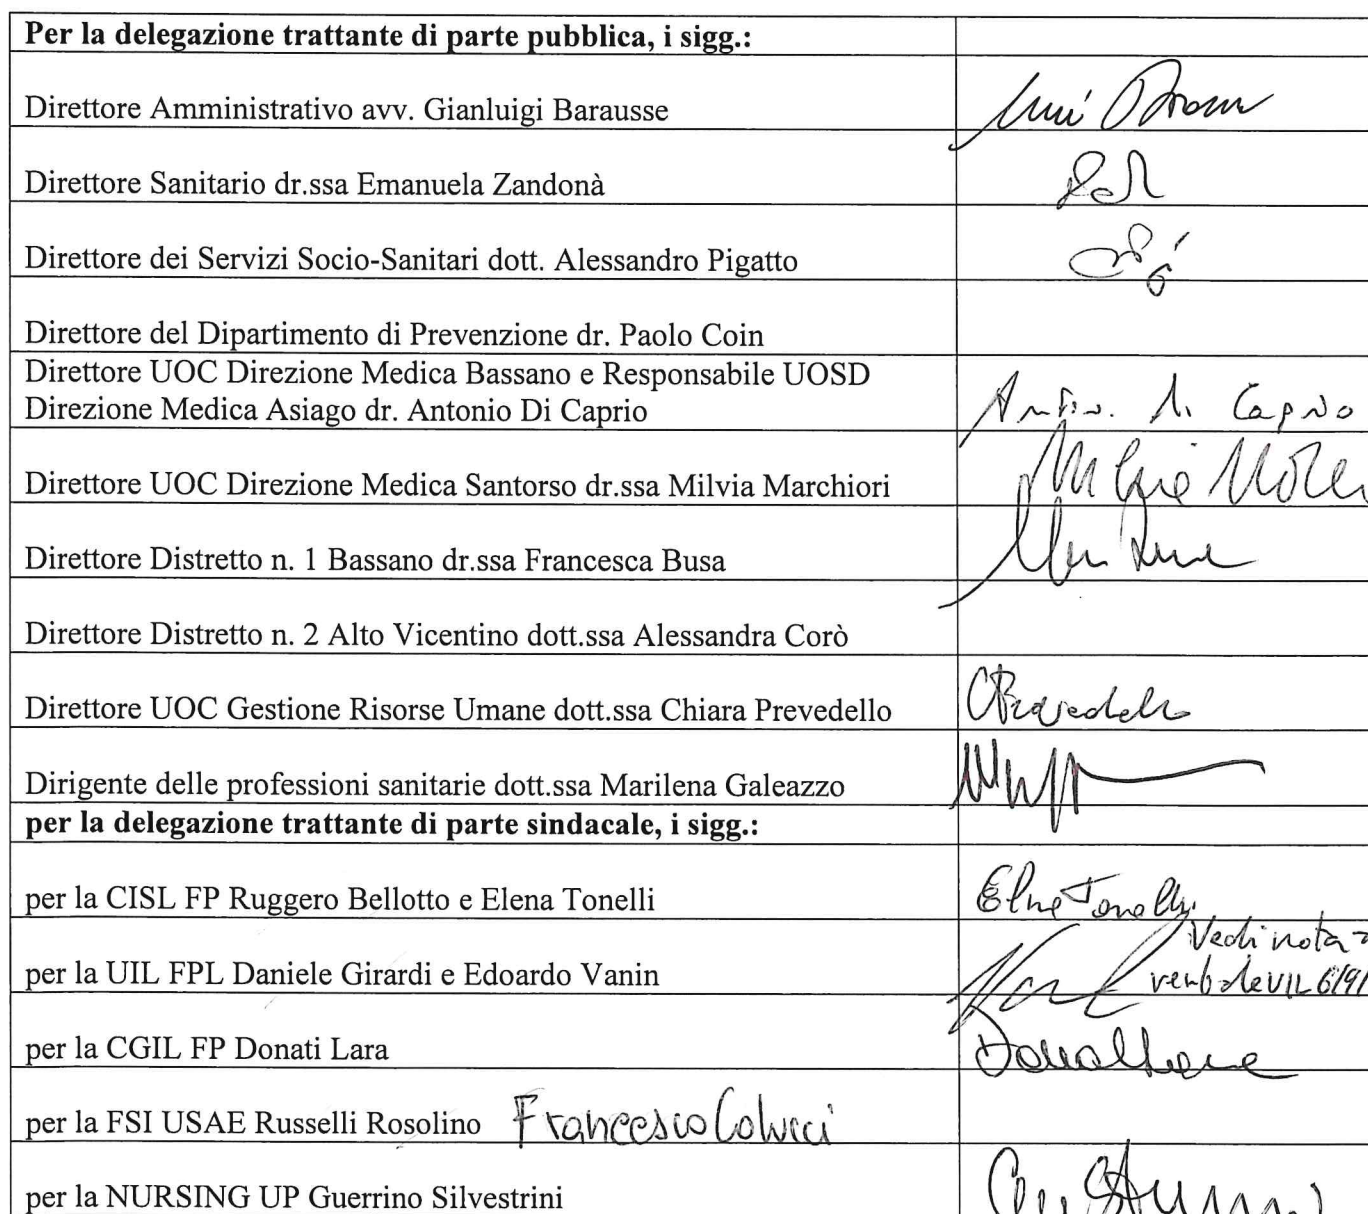 Per la delegazione trattante di parte pubblica, i sigg.:
Direttore Amministrativo avv. Gianluigi Barausse
Direttore Sanitario dr.ssa Emanuela Zandonà
Direttore dei Servizi Socio-Sanitari dott. Alessandro Pigatto
Direttore del Dipartimento di Prevenzione dr. Paolo Coin
Direttore UOC Direzione Medica Bassano e Responsabile UOSD
Direzione Medica Asiago dr. Antonio Di Caprio
Direttore UOC Direzione Medica Santorso dr.ssa Milvia Marchiori
Direttore Distretto n. 1 Bassano dr.ssa Francesca Busa
Direttore Distretto n. 2 Alto Vicentino dott.ssa Alessandra Corò
Direttore UOC Gestione Risorse Umane dott.ssa Chiara Prevedello
CPrevedello
Dirigente delle professioni sanitarie dott.ssa Marilena Galeazzo
per la delegazione trattante di parte sindacale, i sigg.:
per la CISL FP Ruggero Bellotto e Elena Tonelli
Elena Tonelli
Vedi nota a
per la UIL FPL Daniele Girardi e Edoardo Vanin
verbale UIL 6/9/
per la CGIL FP Donati Lara
Donati Lara
per la FSI USAE Russelli Rosolino Francesco Colucci
per la NURSING UP Guerrino Silvestrini